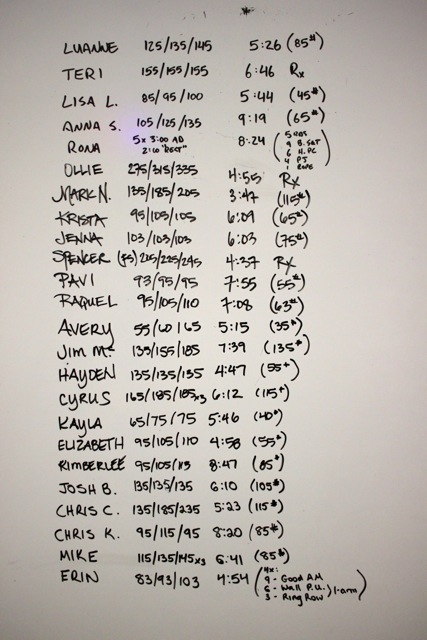 LUANNE 125/135/145 5:26 (85#)
TERI 155/155/155 6:46 Rx
LISA L. 85/95/100 5:44 (45#)
ANNA S. 105/125/135 9:19 (65#)
RONA 5x 3:00 AD 2:00 "REST" 8:24 (5 RDS 9 B. SQT 6 H. PC 4 PJ 1 ROPE)
OLLIE 275/315/335 4:55 Rx
MARK N. 135/185/205 3:47 (115#)
KRISTA 95/105/105 6:09 (65#)
JENNA 103/103/103 6:03 (75#)
SPENCER 205/225/245 4:37 Rx
PAVI 93/95/95 7:55 (55#)
RAQUEL 95/105/110 7:08 (63#)
AVERY 55/60/65 5:15 (35#)
JIM M. 135/155/185 7:39 (135#)
HAYDEN 135/135/135 4:47 (55#)
CYRUS 165/185/185x3 6:12 (115#)
KAYLA 65/75/75 5:46 (40#)
ELIZABETH 95/105/110 4:58 (55#)
KIMBERLEE 95/105/113 8:47 (85#)
JOSH B. 135/135/135 6:10 (105#)
CHRIS C. 135/185/235 5:23 (115#)
CHRIS K. 95/115/95 8:20 (85#)
MIKE 115/135/145x3 6:41 (85#)
ERIN 83/93/103 4:54 (4x: 9 - Good AM 6 - Wall P.U. 3 - Ring Row) 1-arm)